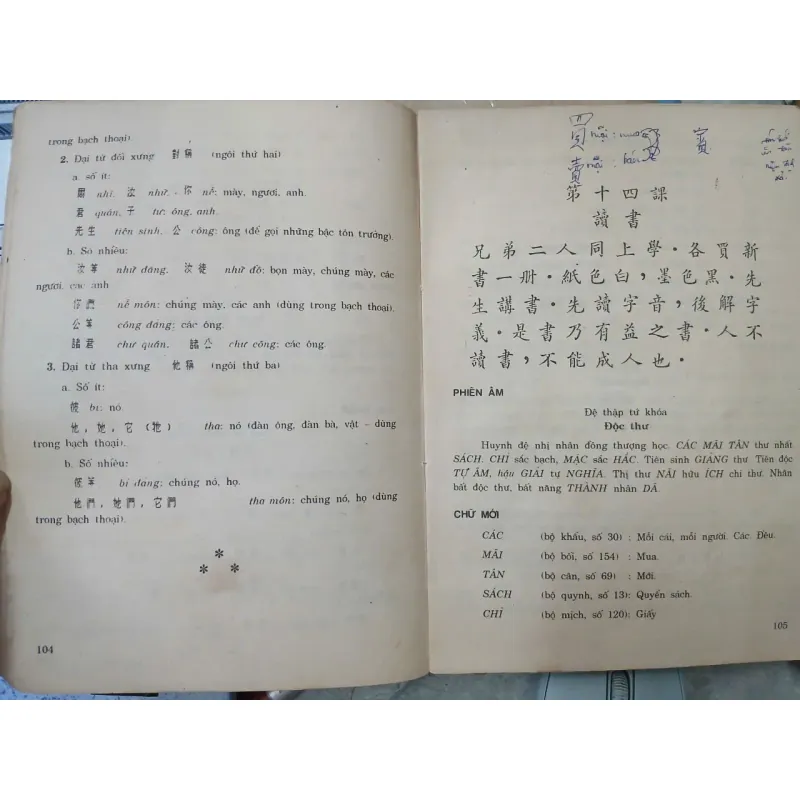 trong bạch thoại).
2. Đại từ đối xưng 對稱 (ngôi thứ hai)
a. số ít:
爾 nhĩ, 汝 nhữ, 你 nễ: mày, ngươi, anh.
君 quân, 子 tử: ông, anh.
先生 tiên sinh, 公 công: ông (để gọi những bậc tôn trưởng).
b. Số nhiều:
汝等 nhữ đẳng, 汝徒 nhữ đồ: bọn mày, chúng mày, các
người, các anh
你們 nễ môn: chúng mày, các anh (dùng trong bạch thoại).
公等 công đẳng: các ông.
諸君 chư quân, 諸公 chư công: các ông.
3. Đại từ tha xưng 他稱 (ngôi thứ ba)
a. Số ít:
彼 bỉ: nó.
他, 她, 它 (牠) tha: nó (đàn ông, đàn bà, vật - dùng
trong bạch thoại).
b. Số nhiều:
彼等 bỉ đẳng: chúng nó, họ.
他們, 她們, 它們 tha môn: chúng nó, họ (dùng
trong bạch thoại).
*
* *
104
買 mại: mua
賣 mại: bán
寳
第十四課
讀書
兄弟二人同上學。各買新
書一册。紙色白,墨色黑。先
生講書。先讀字音,後解字
義。是書乃有益之書。人不
讀書,不能成人也。
PHIÊN ÂM
Đệ thập tứ khóa
Độc thư
Huynh đệ nhị nhân đồng thượng học. CÁC MÃI TÂN thư nhất
SÁCH. CHỈ sắc bạch, MẶC sắc HẮC. Tiên sinh GIẢNG thư Tiên độc
TỰ ÂM, hậu GIẢI tự NGHĨA. Thị thư NÃI hữu ÍCH chi thư. Nhân
bất độc thư, bất năng THÀNH nhân DÃ.
CHỮ MỚI
CÁC (bộ khẩu, số 30) : Mỗi cái, mỗi người. Các. Đều.
MÃI (bộ bối, số 154) : Mua.
TÂN (bộ cân, số 69) : Mới.
SÁCH (bộ quynh, số 13): Quyển sách.
CHỈ (bộ mịch, số 120): Giấy
105